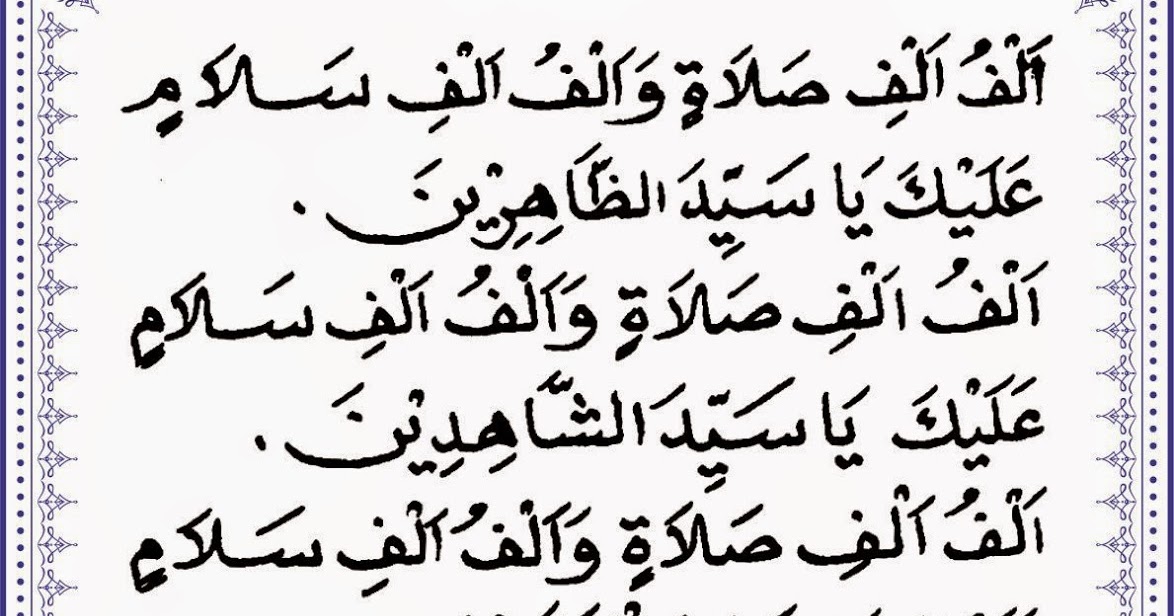 اَلْفُ اَلْفِ صَلَاةٍ وَاَلْفُ اَلْفِ سَلَامٍ
عَلَيْكَ يَا سَيِّدَ الظَّاهِرِيْنَ .
اَلْفُ اَلْفِ صَلَاةٍ وَاَلْفُ اَلْفِ سَلَامٍ
عَلَيْكَ يَا سَيِّدَ الشَّاهِدِيْنَ .
اَلْفُ اَلْفِ صَلَاةٍ وَاَلْفُ اَلْفِ سَلَامٍ